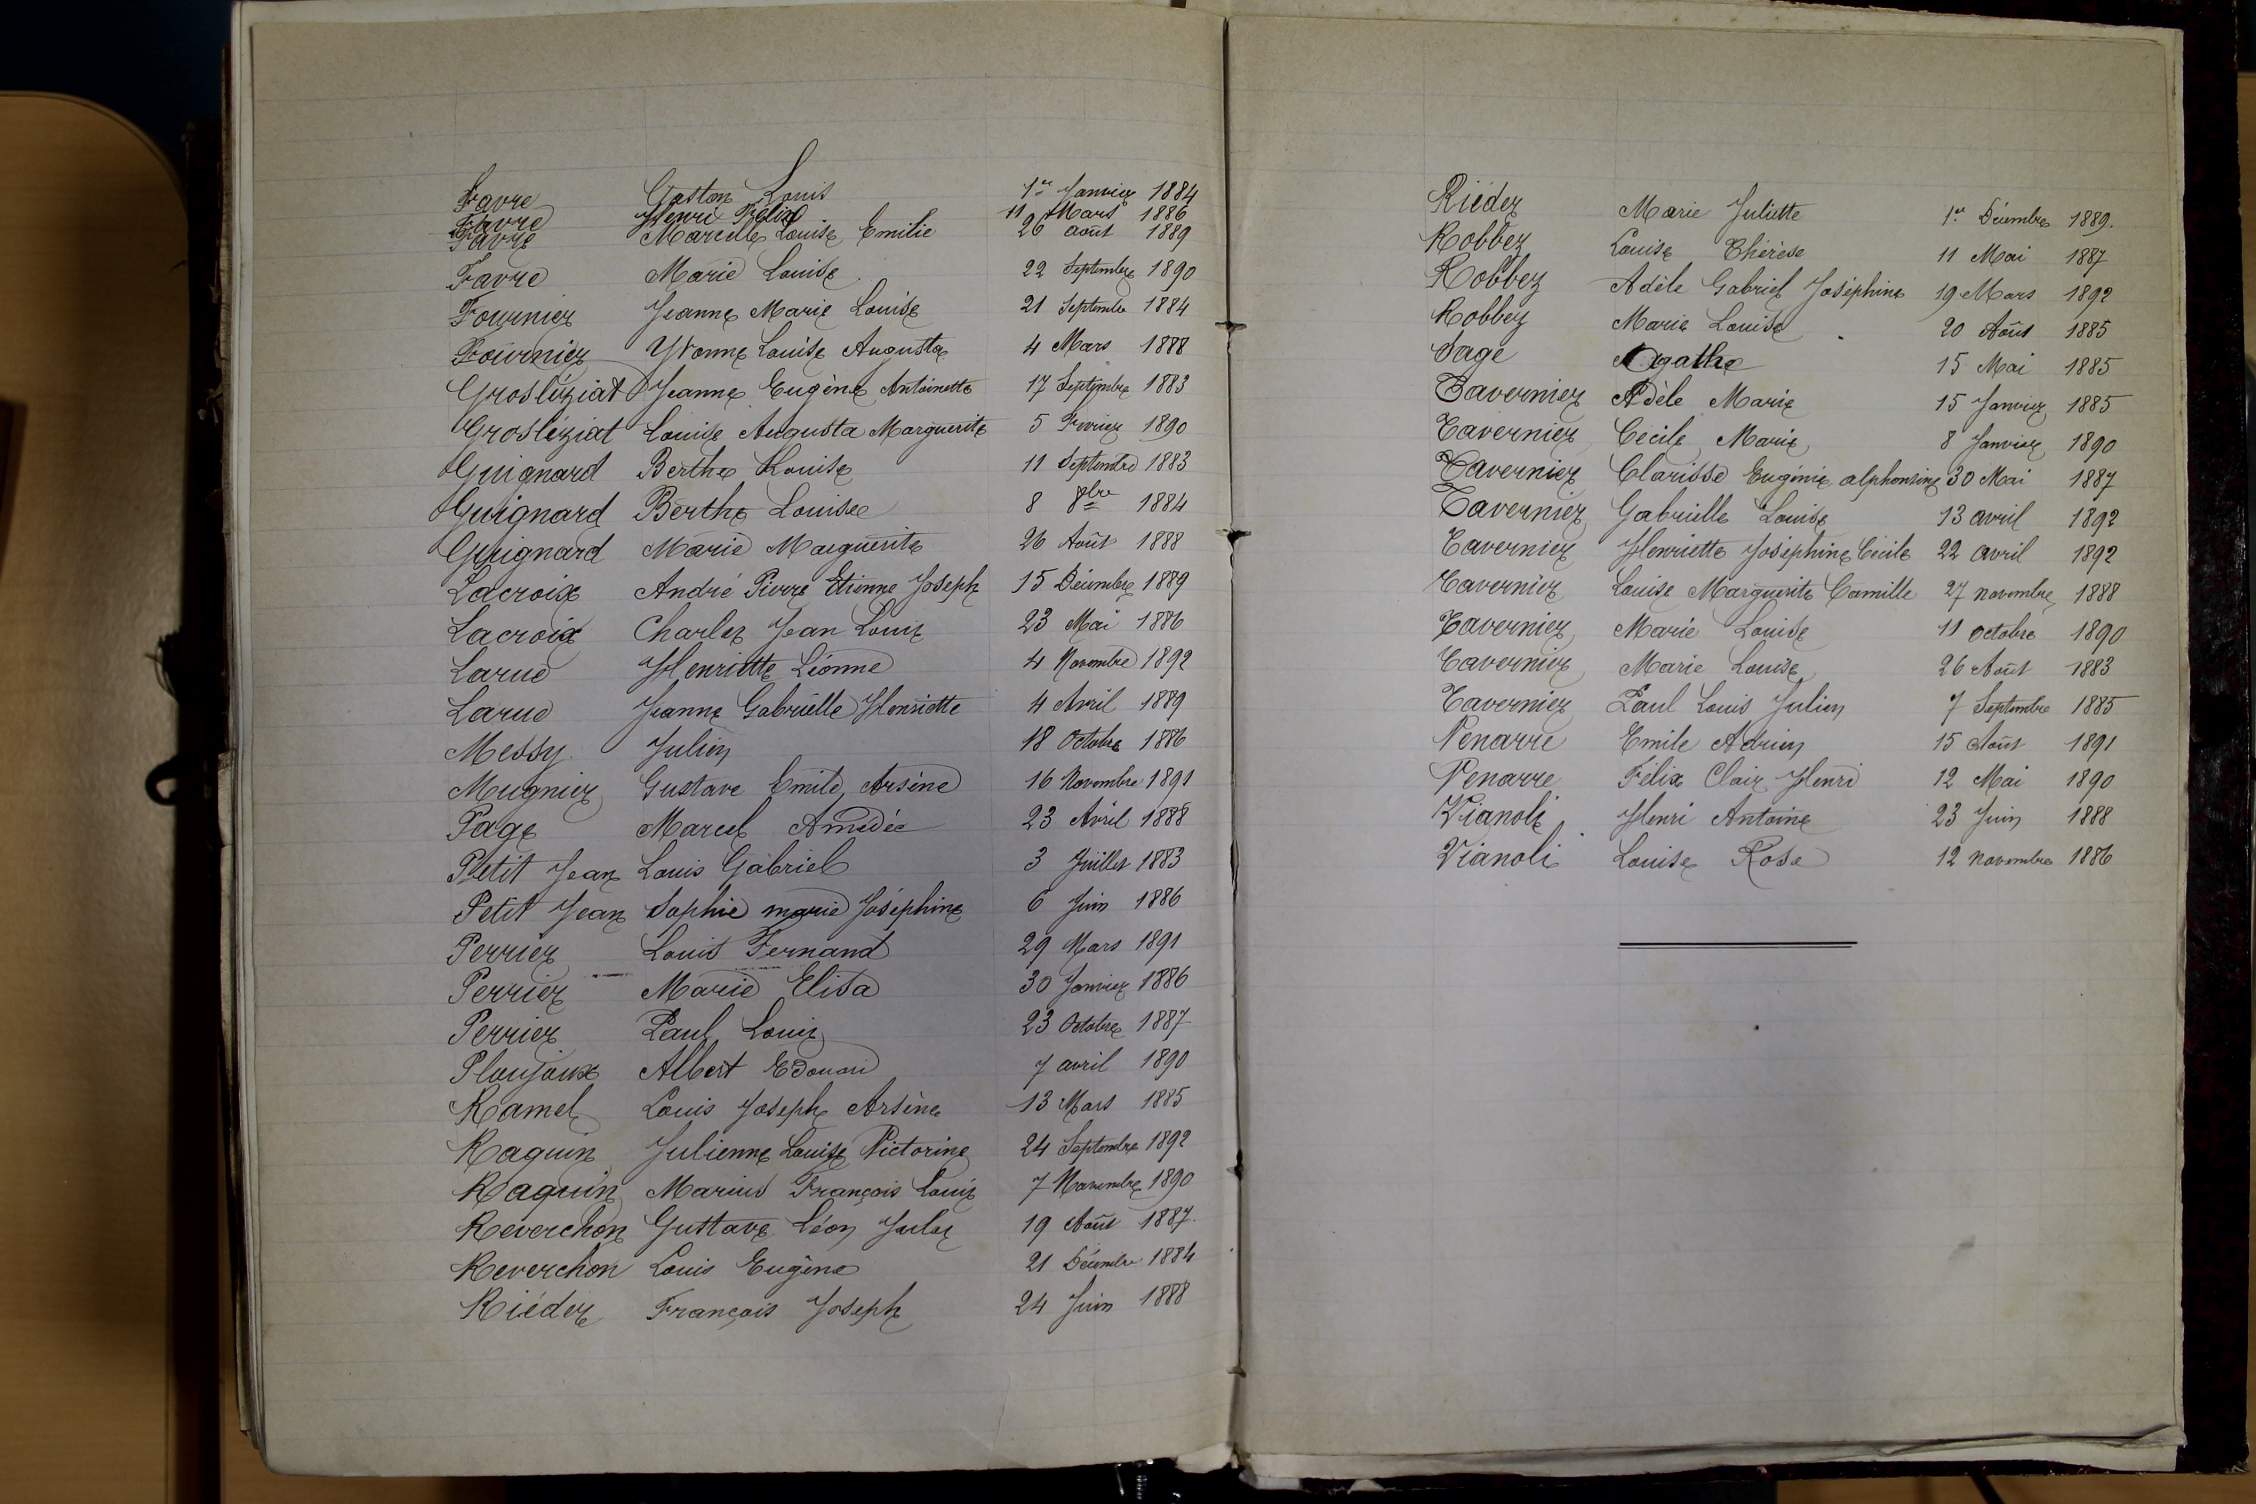 Favre Gaston Louis 1er Janvier 1884
Favre Henri Félix 11 Mars 1886
Favre Marcelle Louise Emilie 26 août 1889
Favre Marie Louise 22 Septembre 1890
Fournier Jeanne Marie Louise 21 Septembre 1884
Fournier Yvonne Louise Augusta 4 Mars 1888
Grosléziat Jeanne Eugène Antoinette 17 Septembre 1883
Grosléziat Louise Augusta Marguerite 5 Février 1890
Guignard Berthe Louise 11 Septembre 1883
Guignard Berthe Louise 8 8bre 1884
Guignard Marie Marguerite 26 Août 1888
Lacroix André Pierre Etienne Joseph 15 Décembre 1889
Lacroix Charles Jean Louis 23 Mai 1886
Larue Henriette Léonne 4 Novembre 1892
Larue Jeanne Gabrielle Henriette 4 Avril 1889
Messy Julien 18 Octobre 1886
Mugnier Gustave Emile Arsène 16 Novembre 1891
Page Marcel Amédée 23 Avril 1888
Petit Jean Louis Gabriel 3 Juillet 1883
Petit Jean Sophie marie Joséphine 6 Juin 1886
Perrier Louis Fernand 29 Mars 1891
Perrier Marie Elisa 30 Janvier 1886
Perrier Paul Louis 23 Octobre 1887
Ploujoux Albert Edouard 7 avril 1890
Ramel Louis Joseph Arsène 13 Mars 1885
Raquin Julienne Louise Victorine 24 Septembre 1892
Raquin Marius François Louis 7 Novembre 1890
Reverchon Gustave Léon Jules 19 Août 1887
Reverchon Louis Eugène 21 Décembre 1884
Riéder François Joseph 24 Juin 1888
Riéder Marie Juliette 1er Décembre 1889.
Robbez Louise Thérèse 11 Mai 1887
Robbez Adèle Gabriel Joséphine 19 Mars 1892
Robbez Marie Louise 20 Août 1885
Sage Agathe 15 Mai 1885
Tavernier Adèle Marie 15 Janvier 1885
Tavernier Cécile Marie 8 Janvier 1890
Tavernier Clarisse Eugénie alphonsine 30 Mai 1887
Tavernier Gabrielle Louise 13 avril 1892
Tavernier Henriette Joséphine Cécile 22 avril 1892
Tavernier Louise Marguerite Camille 27 novembre 1888
Tavernier Marie Louise 11 octobre 1890
Tavernier Marie Louise 26 Août 1883
Tavernier Paul Louis Julien 7 Septembre 1885
Venarre Emile Adrien 15 Août 1891
Venarre Félix Clair Henri 12 Mai 1890
Vianoli Henri Antoine 23 Juin 1888
Vianoli Louise Rose 12 novembre 1886